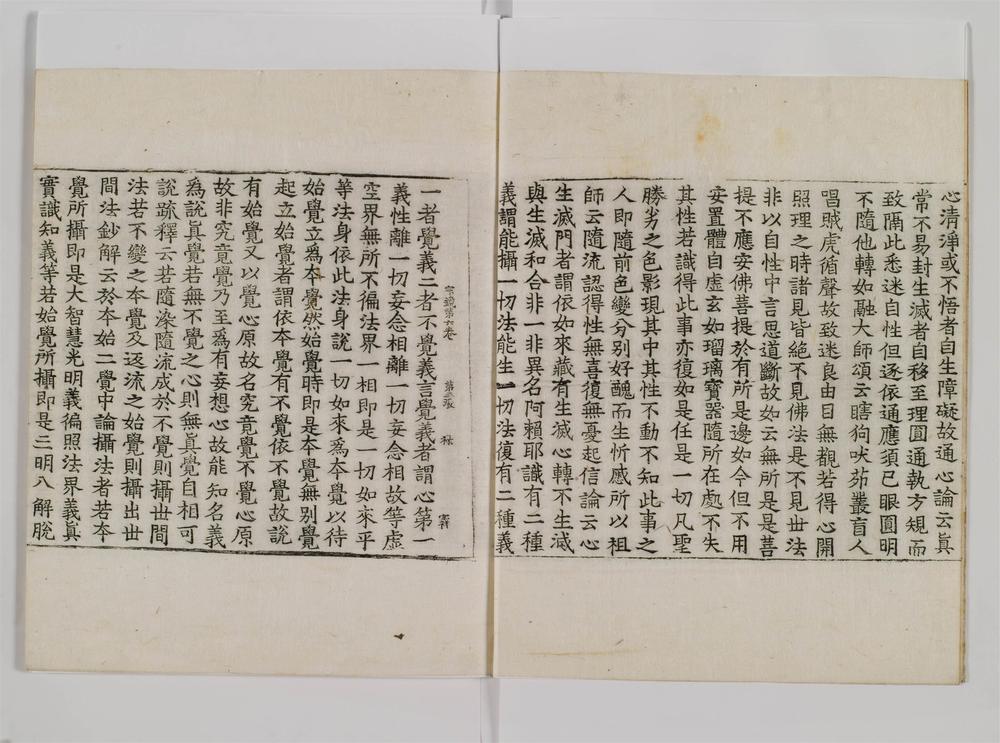 心清淨或不悟者自生障礙故通心論云眞
常不易封生滅者自移至理圓通執方規而
致隔此悉迷自性但逐依通應須已眼圓明
不隨他轉如融大師頌云瞎狗吠茆叢盲人
唱賊虎循聲故致迷良由目無觀若得心開
照理之時諸見皆絶不見佛法是不見世法
非以自性中言思道斷故如云無所是是菩
提不應安佛菩提於有所是邊如今但不用
安置體自虛玄如瑠璃寶器隨所在處不失
其性若識得此事亦復如是任是一切凡聖
勝劣之色影現其中其性不動不知此事之
人即隨前色變分別好醜而生忻慼所以祖
師云隨流認得性無喜復無憂起信論云心
生滅門者謂依如來藏有生滅心轉不生滅
與生滅和合非一非異名阿賴耶識有二種
義謂能攝一切法能生一切法復有二種義
一者覺義二者不覺義言覺義者謂心第一
義性離一切妄念相離一切妄念相故等虛
空界無所不徧法界一相即是一切如來平
等法身依此法身說一切如來爲本覺以待
始覺立爲本覺然始覺時即是本覺無別覺
起立始覺者謂依本覺有不覺依不覺故說
有始覺又以覺心原故名究竟覺不覺心原
故非究竟覺乃至爲有妄想心故能知名義
爲說眞覺若無不覺之心則無眞覺自相可
說䟽釋云若隨染隨流成於不覺則攝世間
法若不變之本覺及返流之始覺則攝出世
間法鈔解云於本始二覺中論攝法者若本
覺所攝即是大智慧光明義徧照法界義眞
實識知義等若始覺所攝即是三明八解脫